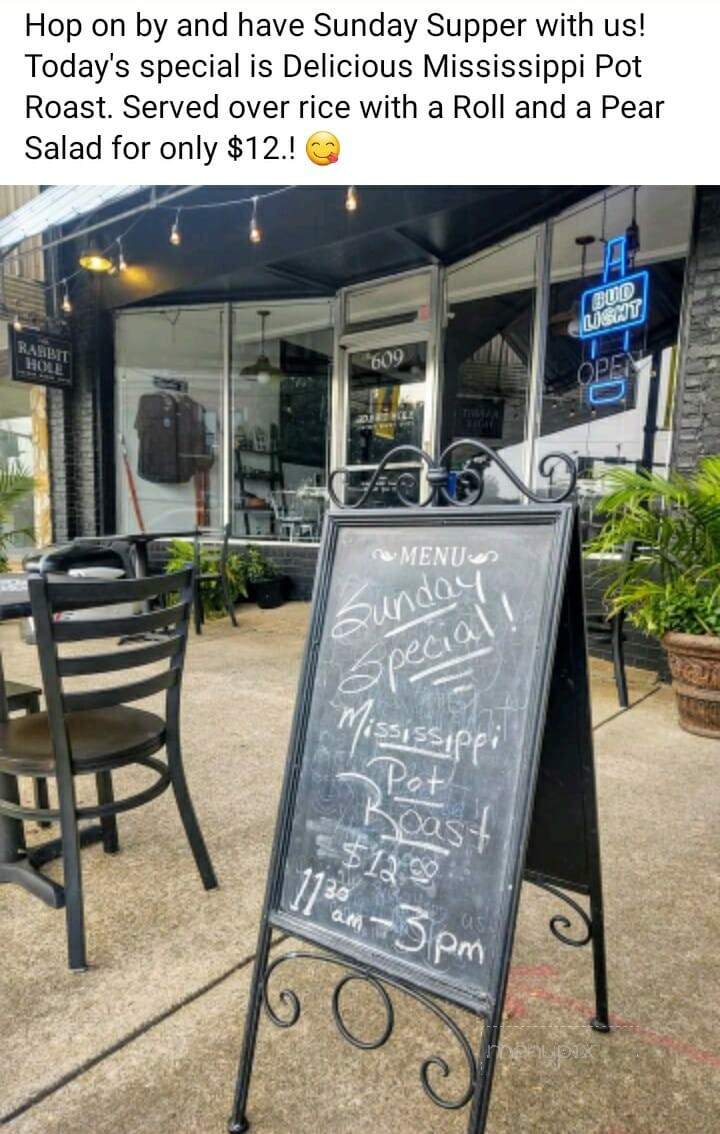 Hop on by and have Sunday Supper with us!
Today's special is Delicious Mississippi Pot
Roast. Served over rice with a Roll and a Pear
Salad for only $12.! 😋
BUD
LIGHT
OPEN
RABBIT
HOLE
609
MENU
Sunday
Special!
Mississippi
Pot
Roast
$12.00
11 30 am - 3 pm
menupix